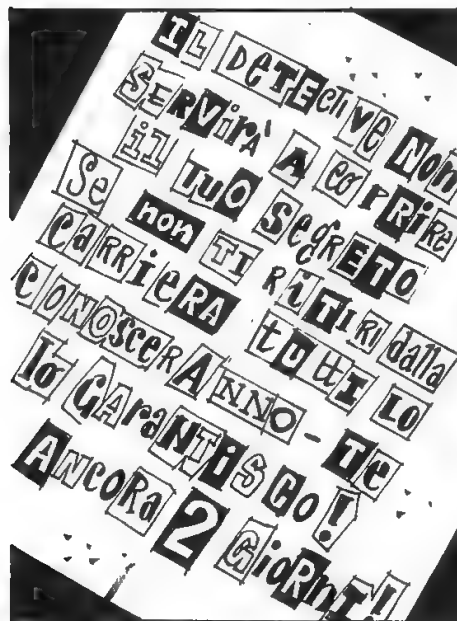 IL DETECtIVE NOn
SERVIRA' A COPRIRE
il TUO SEGRETO
Se non TI RITIRI dalla
CARRIERA tuttI LO
CONOSCERANNO_ TE
lo GARANTISCO!
ANCORA 2 GIORNI!